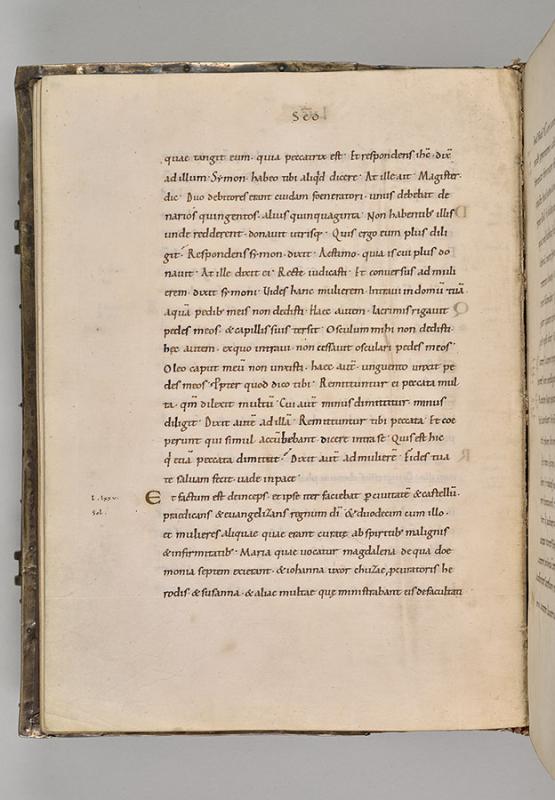 Scd
quae tangit eum · quia peccatrix est · Et respondens ihc̄ · dix̄
ad illum · Symon · habeo tibi aliqd dicere · At ille ait · Magister ·
dic · Duo debitores erant cuidam foeneratori · unus debebat de
narios quingentos · alius quinquaginta · Non habentib; illis
unde redderent · donavit utrisq; · Quis ergo eum plus dili
git · Respondens symon · dixit · Aestimo · quia is cui plus do
navit · At ille dixit ei · Recte iudicasti · Et conversus ad muli
erem · dixit symoni · Vides hanc mulierem · Intravi in domū tuā
aquā pedib; meis non dedisti · Haec autem · lacrimis rigavit
pedes meos · & capillis suis tersit · Osculum mihi non dedisti ·
hęc autem · ex quo intravi · non cessavit osculari pedes meos ·
Oleo caput meū non unxisti · haec aut̄ · unguento unxit pe
des meos · Ppter quod dico tibi · Remittuntur ei peccata mul
ta · qm̄ dilexit multū · Cui aut̄ minus dimittitur · minus
diligit · Dixit aut̄ ad illā · Remittuntur tibi peccata · Et coe
perunt qui simul accūbebant · dicere intra se · Quis est hic
q̄ etiā peccata dimittit · Dixit aut̄ ad mulierē · Fides tua
te salvam fecit · vade in pace ·
Et factum est deinceps · et ipse iter faciebat p civitatē & castellū ·
praedicans & evangelizans regnum dī · & duodecim cum illo ·
et mulieres aliquae quae erant curatę ab spiritib; malignis
& infirmitatib; · Maria quae vocatur magdalena de qua doe
monia septem exierant · & iohanna uxor chuzae, pcuratoris he
rodis & susanna · & aliae multae quę ministrabant eis de facultati